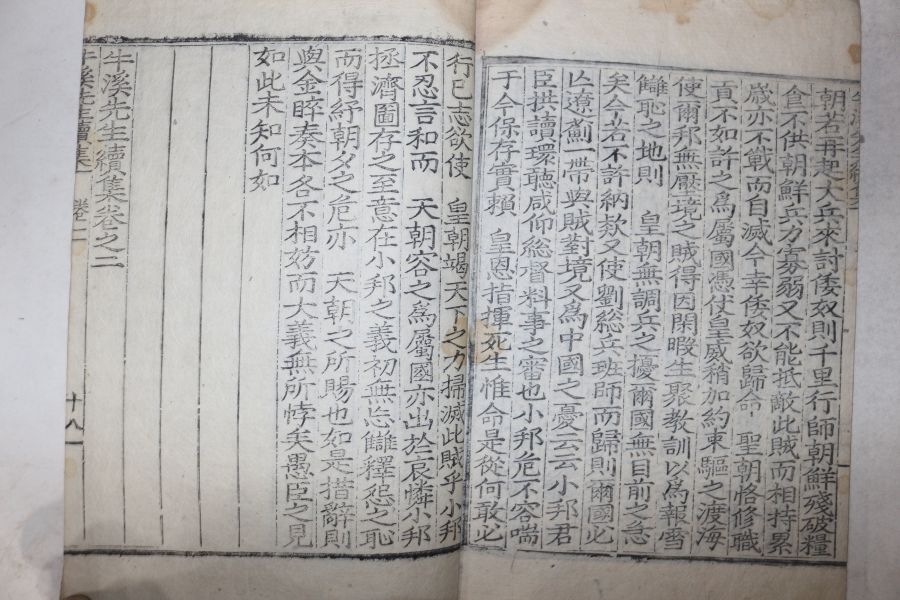 朝若再起大兵來討倭奴則千里行師朝鮮殘破糧
食不供朝鮮兵力寡弱又不能抵敵此賊而相持累
歲亦不戰而自滅今幸倭奴欲歸命　聖朝恪修職
貢不如許之爲屬國憑仗皇威稍加約束驅之渡海
使爾邦無壓境之賊得因閑暇生聚敎訓以爲報雪
讎恥之地則　皇朝無調兵之擾爾國無目前之急
矣今若不許納欵又使劉総兵班師而歸則爾國必
亡遼薊一帶與賊對境又爲中國之憂云云小邦君
臣拱讀環聽咸仰総督料事之審也小邦危不容喘
于今保存實賴　皇恩指揮死生惟命是從何敢必
行已志欲使　皇朝竭天下之力掃滅此賊乎小邦
不忍言和而　天朝容之爲屬國亦出於哀憐小邦
拯濟圖存之至意在小邦之義初無忘讎釋怨之恥
而得紓朝夕之危亦　天朝之所賜也如是措辭則
與金睟奏本各不相妨而大義無所悖矣愚臣之見
如此未知何如
牛溪先生續集卷之二
牛溪先生續集　卷二
十八